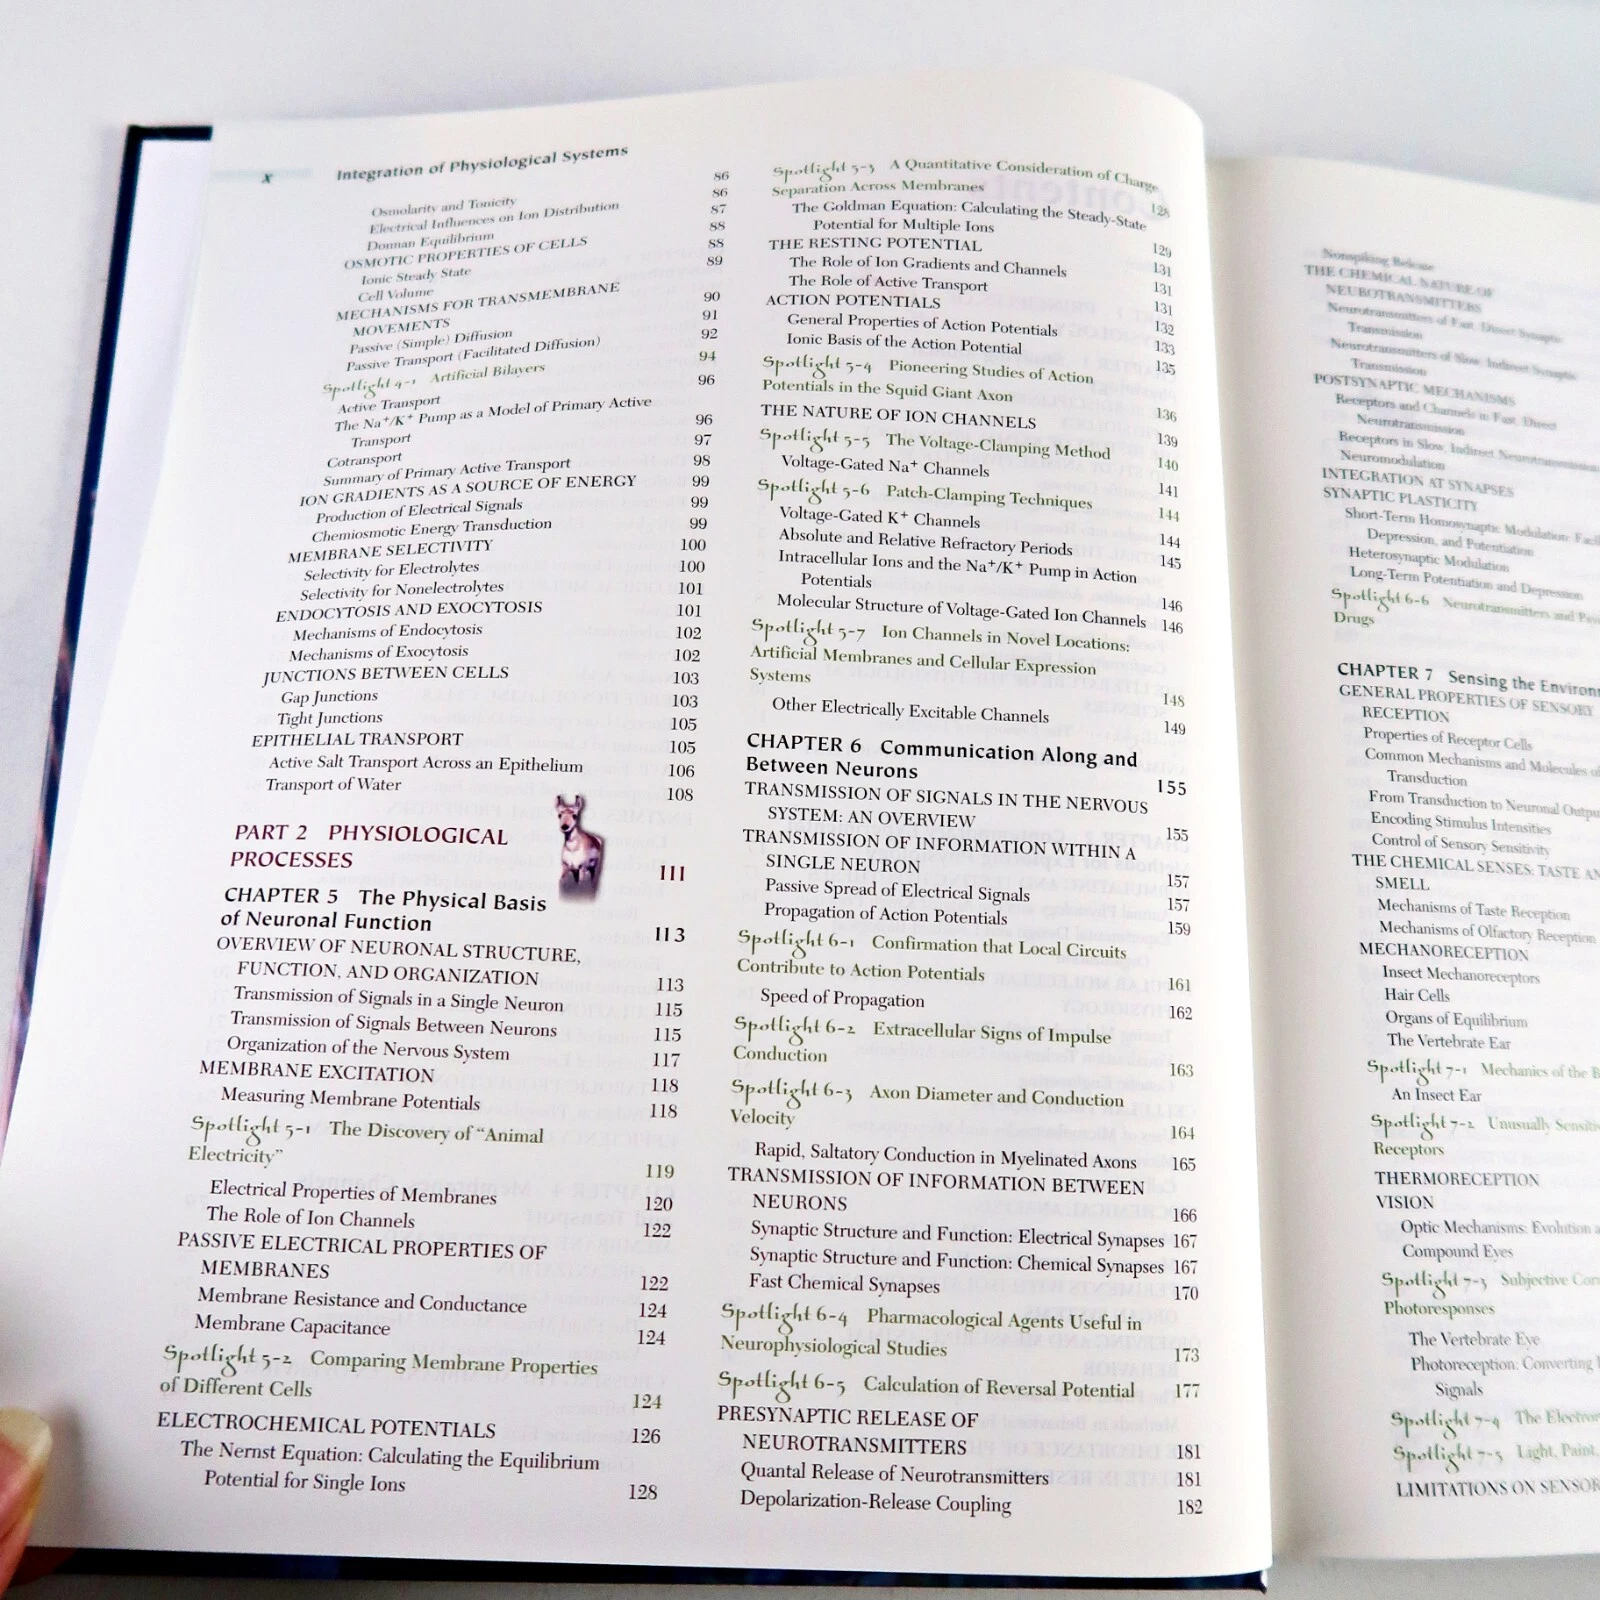 x Integration of Physiological Systems
Osmolarity and Tonicity 86
Electrical Influences on Ion Distribution 86
Donnan Equilibrium 87
OSMOTIC PROPERTIES OF CELLS 88
Ionic Steady State 88
Cell Volume 89
MECHANISMS FOR TRANSMEMBRANE
MOVEMENTS 90
Passive (Simple) Diffusion 91
Passive Transport (Facilitated Diffusion) 92
Spotlight 4-1 Artificial Bilayers 94
Active Transport 96
The Na⁺/K⁺ Pump as a Model of Primary Active
Transport 96
Cotransport 97
Summary of Primary Active Transport 98
ION GRADIENTS AS A SOURCE OF ENERGY 99
Production of Electrical Signals 99
Chemiosmotic Energy Transduction 99
MEMBRANE SELECTIVITY 100
Selectivity for Electrolytes 100
Selectivity for Nonelectrolytes 101
ENDOCYTOSIS AND EXOCYTOSIS 101
Mechanisms of Endocytosis 102
Mechanisms of Exocytosis 102
JUNCTIONS BETWEEN CELLS 103
Gap Junctions 103
Tight Junctions 105
EPITHELIAL TRANSPORT 105
Active Salt Transport Across an Epithelium 106
Transport of Water 108
PART 2 PHYSIOLOGICAL
PROCESSES 111
CHAPTER 5 The Physical Basis
of Neuronal Function 113
OVERVIEW OF NEURONAL STRUCTURE,
FUNCTION, AND ORGANIZATION 113
Transmission of Signals in a Single Neuron 115
Transmission of Signals Between Neurons 115
Organization of the Nervous System 117
MEMBRANE EXCITATION 118
Measuring Membrane Potentials 118
Spotlight 5-1 The Discovery of “Animal
Electricity” 119
Electrical Properties of Membranes 120
The Role of Ion Channels 122
PASSIVE ELECTRICAL PROPERTIES OF
MEMBRANES 122
Membrane Resistance and Conductance 124
Membrane Capacitance 124
Spotlight 5-2 Comparing Membrane Properties
of Different Cells 124
ELECTROCHEMICAL POTENTIALS 126
The Nernst Equation: Calculating the Equilibrium
Potential for Single Ions 128
Spotlight 5-3 A Quantitative Consideration of Charge
Separation Across Membranes 128
The Goldman Equation: Calculating the Steady-State
Potential for Multiple Ions 129
THE RESTING POTENTIAL 131
The Role of Ion Gradients and Channels 131
The Role of Active Transport 131
ACTION POTENTIALS 132
General Properties of Action Potentials 133
Ionic Basis of the Action Potential 135
Spotlight 5-4 Pioneering Studies of Action
Potentials in the Squid Giant Axon 136
THE NATURE OF ION CHANNELS 139
Spotlight 5-5 The Voltage-Clamping Method 140
Voltage-Gated Na⁺ Channels 141
Spotlight 5-6 Patch-Clamping Techniques 144
Voltage-Gated K⁺ Channels 144
Absolute and Relative Refractory Periods 145
Intracellular Ions and the Na⁺/K⁺ Pump in Action
Potentials 146
Molecular Structure of Voltage-Gated Ion Channels 146
Spotlight 5-7 Ion Channels in Novel Locations:
Artificial Membranes and Cellular Expression
Systems 148
Other Electrically Excitable Channels 149
CHAPTER 6 Communication Along and
Between Neurons 155
TRANSMISSION OF SIGNALS IN THE NERVOUS
SYSTEM: AN OVERVIEW 155
TRANSMISSION OF INFORMATION WITHIN A
SINGLE NEURON 157
Passive Spread of Electrical Signals 157
Propagation of Action Potentials 159
Spotlight 6-1 Confirmation that Local Circuits
Contribute to Action Potentials 161
Speed of Propagation 162
Spotlight 6-2 Extracellular Signs of Impulse
Conduction 163
Spotlight 6-3 Axon Diameter and Conduction
Velocity 164
Rapid, Saltatory Conduction in Myelinated Axons 165
TRANSMISSION OF INFORMATION BETWEEN
NEURONS 166
Synaptic Structure and Function: Electrical Synapses 167
Synaptic Structure and Function: Chemical Synapses 167
Fast Chemical Synapses 170
Spotlight 6-4 Pharmacological Agents Useful in
Neurophysiological Studies 173
Spotlight 6-5 Calculation of Reversal Potential 177
PRESYNAPTIC RELEASE OF
NEUROTRANSMITTERS 181
Quantal Release of Neurotransmitters 181
Depolarization-Release Coupling 182
Nonspiking Release
THE CHEMICAL NATURE OF
NEUROTRANSMITTERS
Neurotransmitters of Fast, Direct Synaptic
Transmission
Neurotransmitters of Slow, Indirect Synaptic
Transmission
POSTSYNAPTIC MECHANISMS
Receptors and Channels in Fast, Direct
Neurotransmission
Receptors in Slow, Indirect Neurotransmission:
Neuromodulation
INTEGRATION AT SYNAPSES
SYNAPTIC PLASTICITY
Short-Term Homosynaptic Modulation:
Depression, and Potentiation
Heterosynaptic Modulation
Long-Term Potentiation and Depression
Spotlight 6-6 Neurotransmitters and
Drugs
CHAPTER 7 Sensing the
GENERAL PROPERTIES OF SENSORY
RECEPTION
Properties of Receptor Cells
Common Mechanisms and Molecules of
Transduction
From Transduction to Neuronal
Encoding Stimulus Intensities
Control of Sensory Sensitivity
THE CHEMICAL SENSES: TASTE
SMELL
Mechanisms of Taste Reception
Mechanisms of Olfactory Reception
MECHANORECEPTION
Insect Mechanoreceptors
Hair Cells
Organs of Equilibrium
The Vertebrate Ear
Spotlight 7-1 Mechanics of the
An Insect Ear
Spotlight 7-2 Unusually
Receptors
THERMORECEPTION
VISION
Optic Mechanisms: Evolution
Compound Eyes
Spotlight 7-3 Subjective
Photoresponses
The Vertebrate Eye
Photoreception: Converting
Signals
Spotlight 7-4 The
Spotlight 7-5 Light, Paint,
LIMITATIONS ON